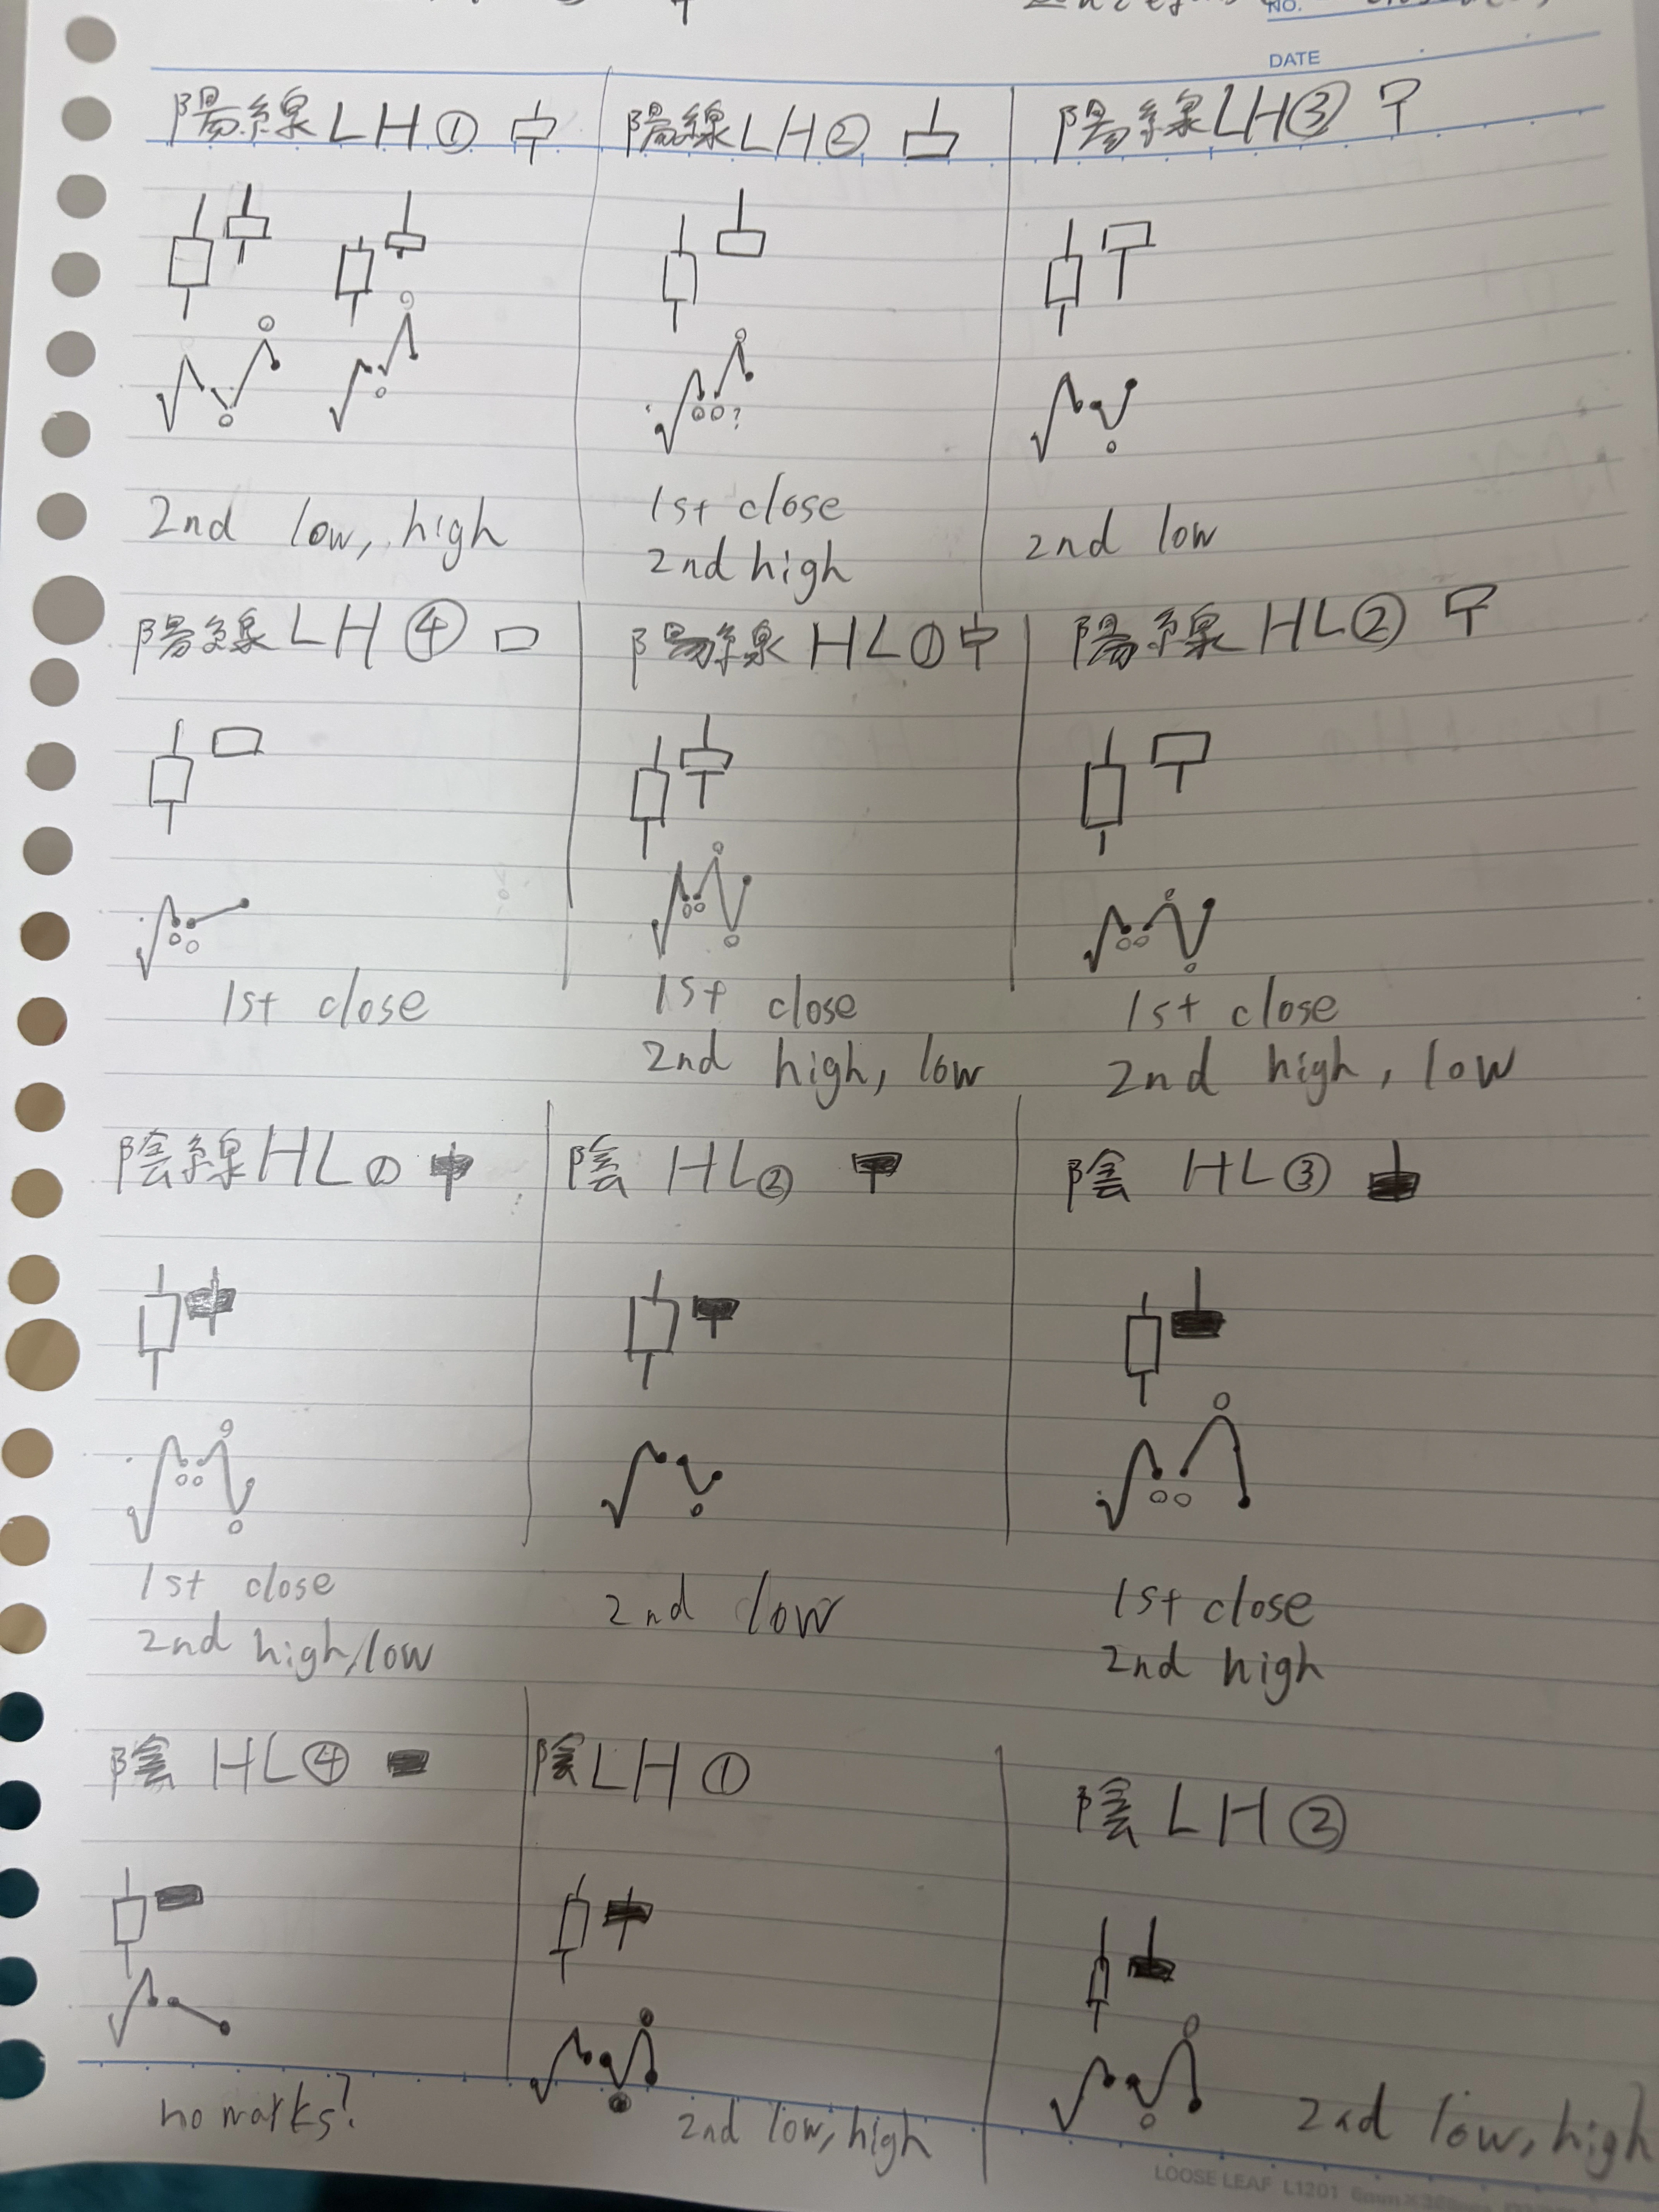 NO.
DATE
陽線LH①
陽線LH②
陽線LH③
?
2nd low, high
1st close
2nd high
2nd low
陽線LH④
陽線HL①
陽線HL②
1st close
1st close
2nd high, low
1st close
2nd high, low
陰線HL①
陰HL②
陰HL③
1st close
2nd high, low
2nd low
1st close
2nd high
陰HL④
陰LH①
陰LH②
no marks?
2nd low, high
2nd low, high
LOOSE LEAF L1201